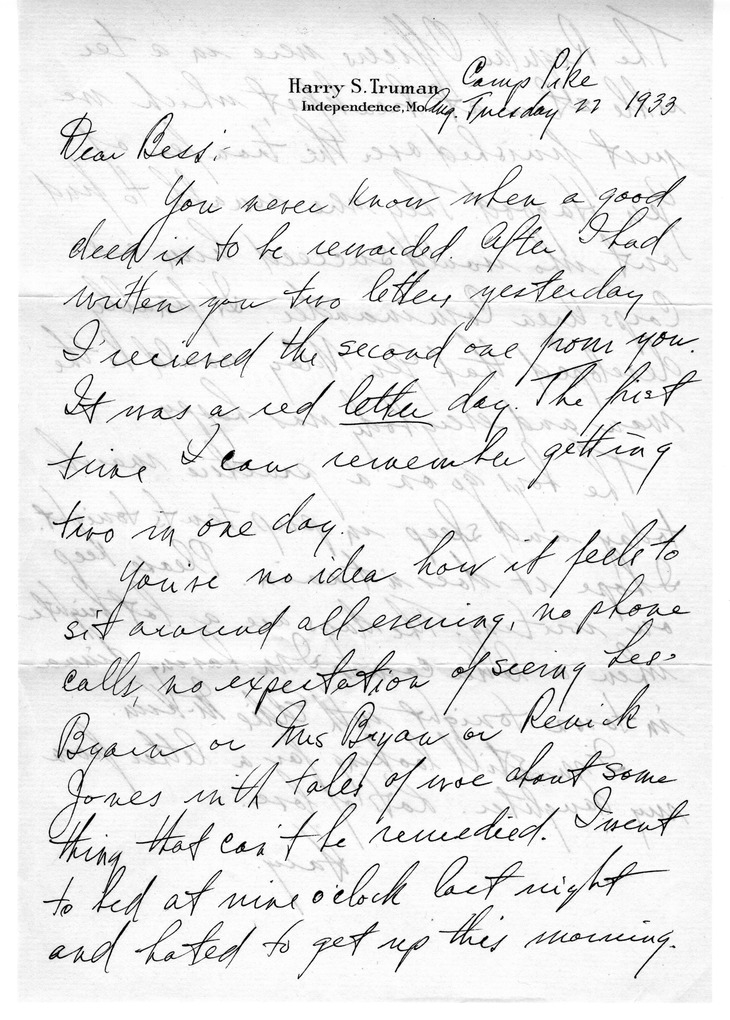 Harry S. Truman
Independence, Mo.
Camp Pike
Aug. Tuesday 22 1933
Dear Bess:
You never know when a good
deed is to be rewarded. After I had
written you two letters yesterday
I recieved the second one from you.
It was a red letter day. The first
time I can remember getting
two in one day.
You've no idea how it feels to
sit around all evening, no phone
calls, no expectation of seeing Les
Byam or Mrs Bryan or Renick
Jones with tales of woe about some
thing that can't be remedied. I went
to bed at nine o'clock last night
and hated to get up this morning.